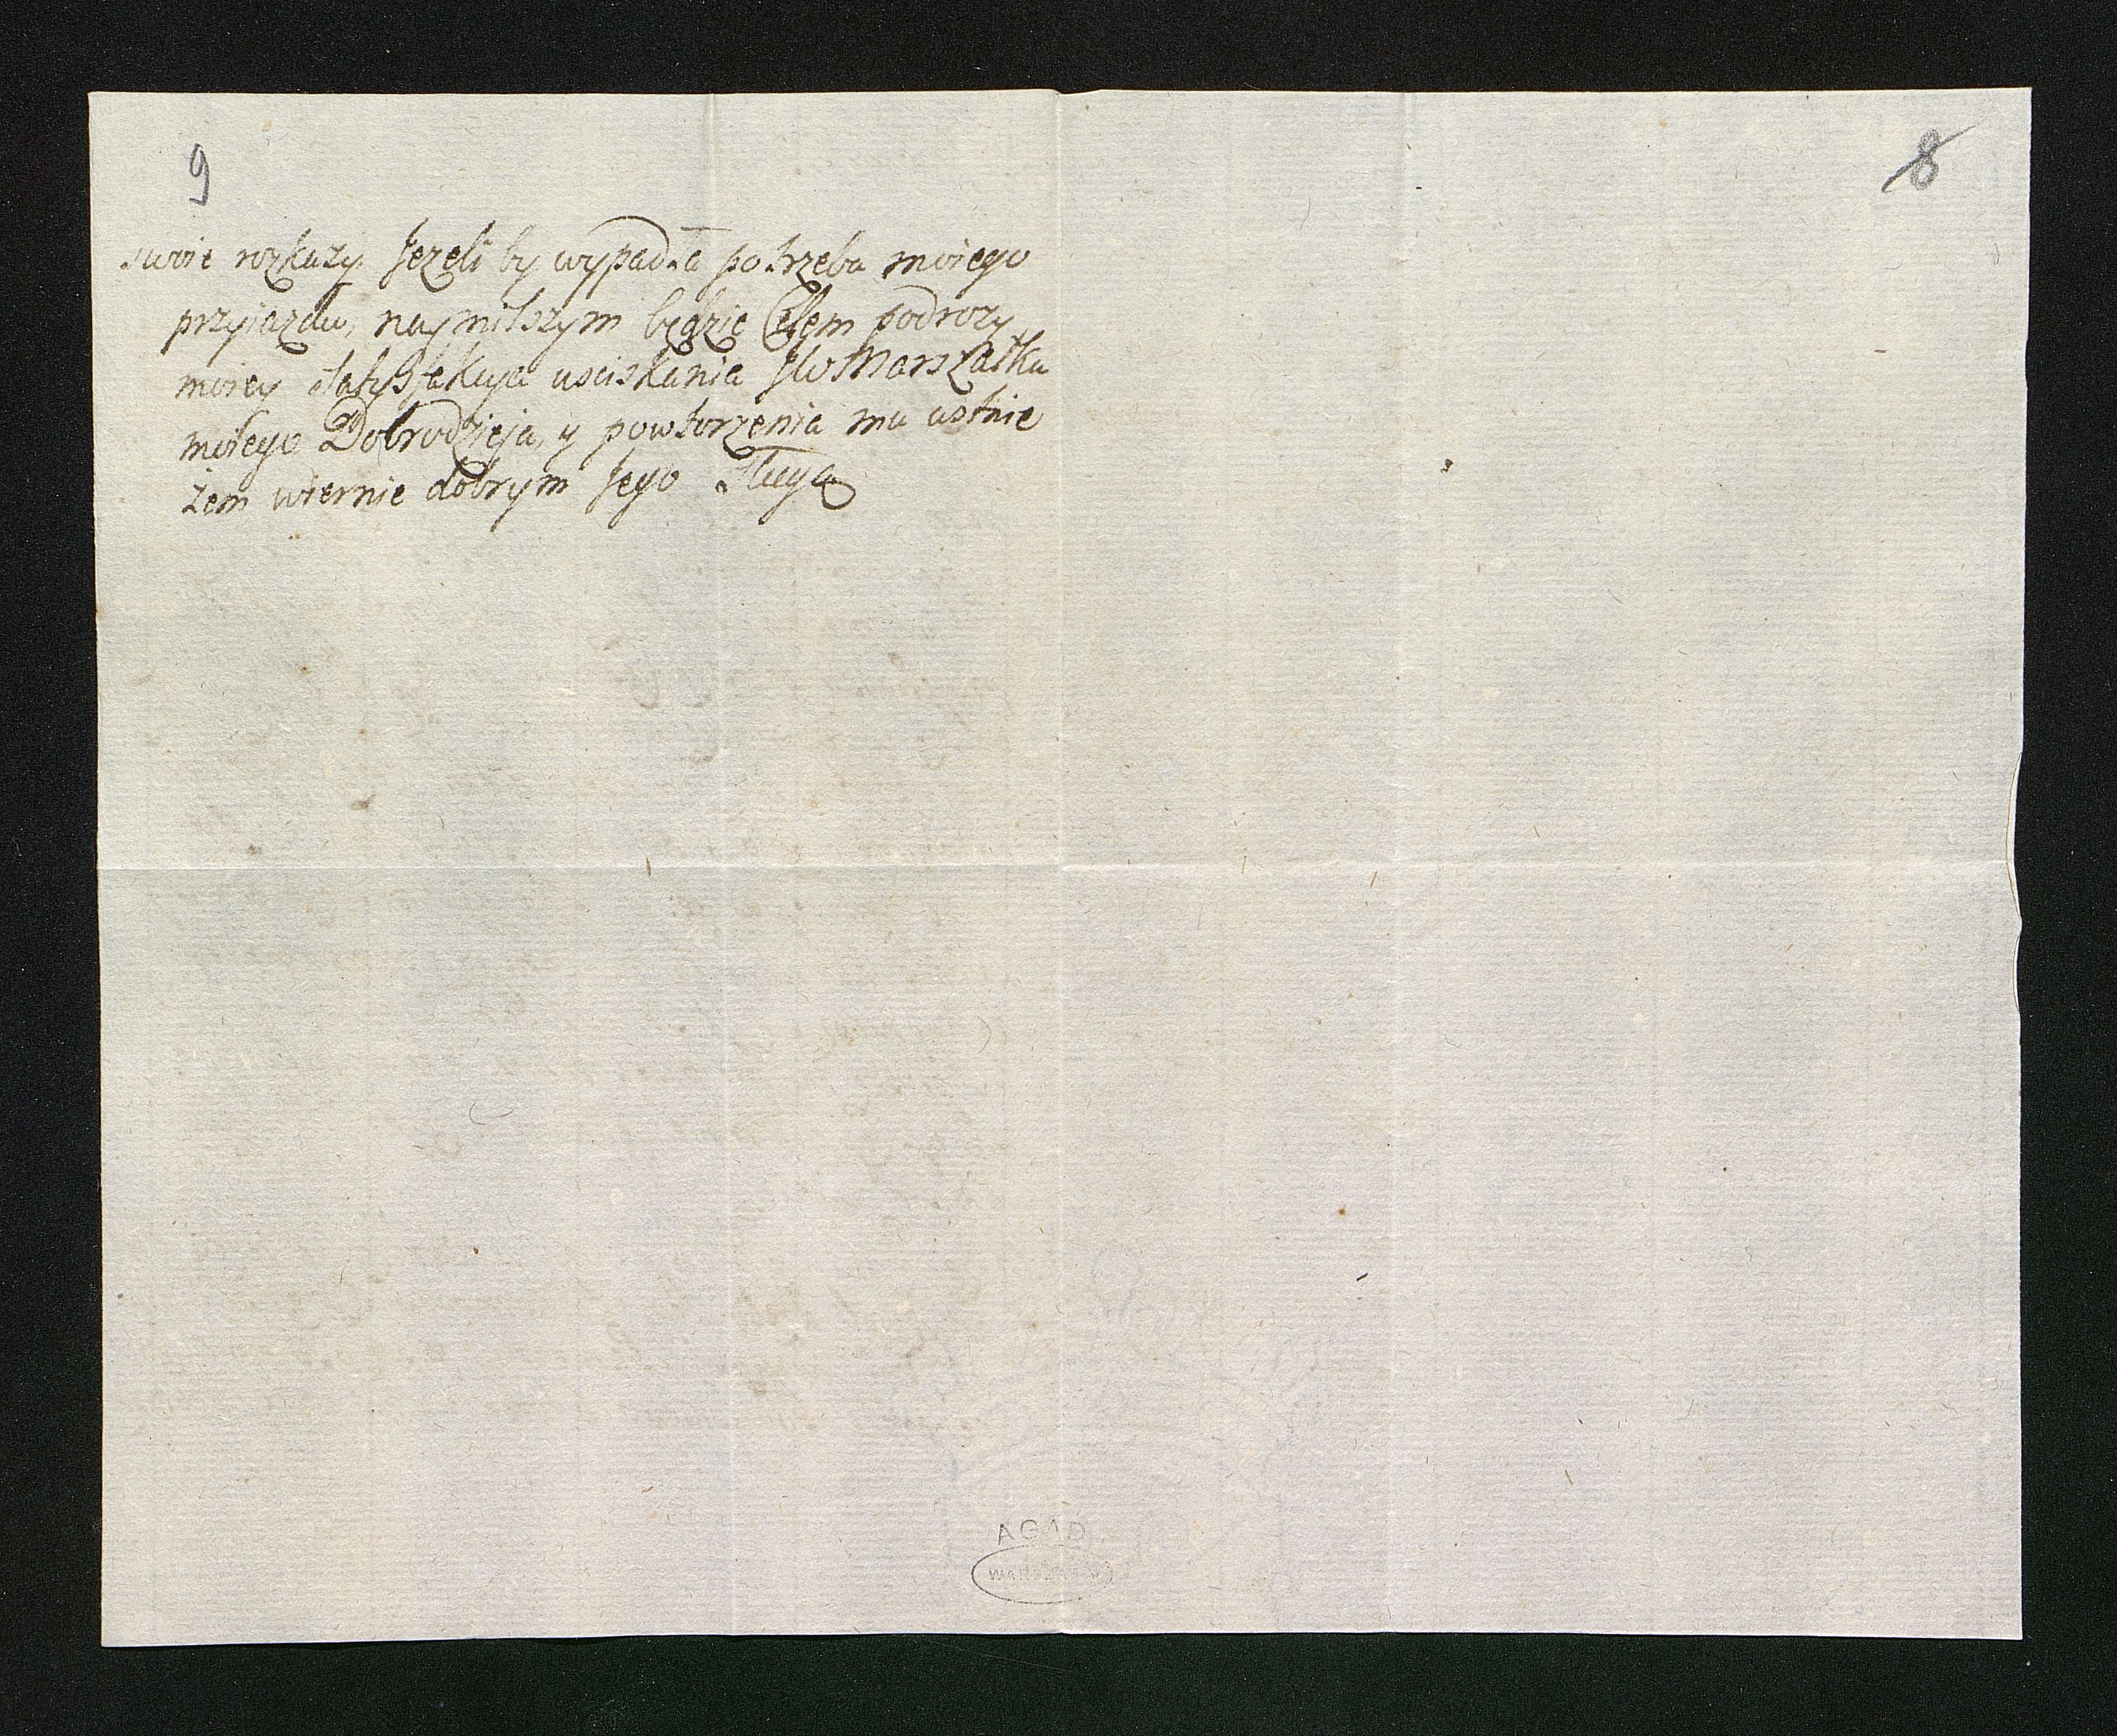 9
8
swoie rozkazy. Jezeli by wypadła potrzeba moiego
przyjazdu, naymilszym będzie Celem podrozy
moiey satysfakcya usciskania JW Marszałka
moiego Dobrodzieja, y powtorzenia mu ustnie
żem wiernie dobrym Jego Sługą
AGAD
WARSZAWA